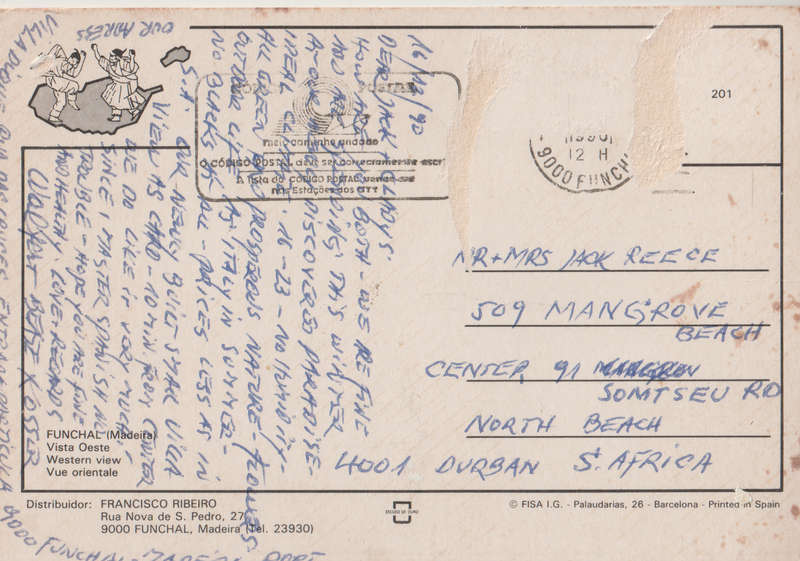 16/12/90
DEAR JACK
HOW ARE YOU BOTH - WE ARE FINE
AND ARE THIS WINTER
A-OUR NEW DISCOVERED PARADISE
IDEAL CLIMATE. 16-23 - NO HUMIDITY -
ALL GREEN PROSPEROUS NATURE - FLOWERS
OUTDOOR LIFE AS ITALY IN SUMMER -
NO BLACKS AT ALL - PRICES LESS AS IN
S.A. OUR NEWLY BUILT SMALL VILLA
VIEW AS CARD - 10 MIN. FROM CENTER
WE DO LIKE IT VERY MUCH -
SINCE I MASTER SPANISH NO
TROUBLE - HOPE YOU ARE FINE
AND HEALTHY. LOVE + REGARDS
OUR ADRESS
9000 FUNCHAL - MADEIRA PORT
meio caminho andado
O CÓDIGO POSTAL deve ser correctamente escrito
A lista do CÓDIGO POSTAL vende-se
nas Estações dos CTT
1990
12 H
9000 FUNCHAL
201
MR + MRS JACK REECE
509 MANGROVE
BEACH
CENTER, 91
SOMTSEU RD
NORTH BEACH
4001 DURBAN S. AFRICA
FUNCHAL (Madeira)
Vista Oeste
Western view
Vue orientale
Distribuidor: FRANCISCO RIBEIRO
Rua Nova de S. Pedro, 27
9000 FUNCHAL, Madeira (Tel. 23930)
ESCUDO DE OURO
© FISA I.G. - Palaudarias, 26 - Barcelona - Printed in Spain